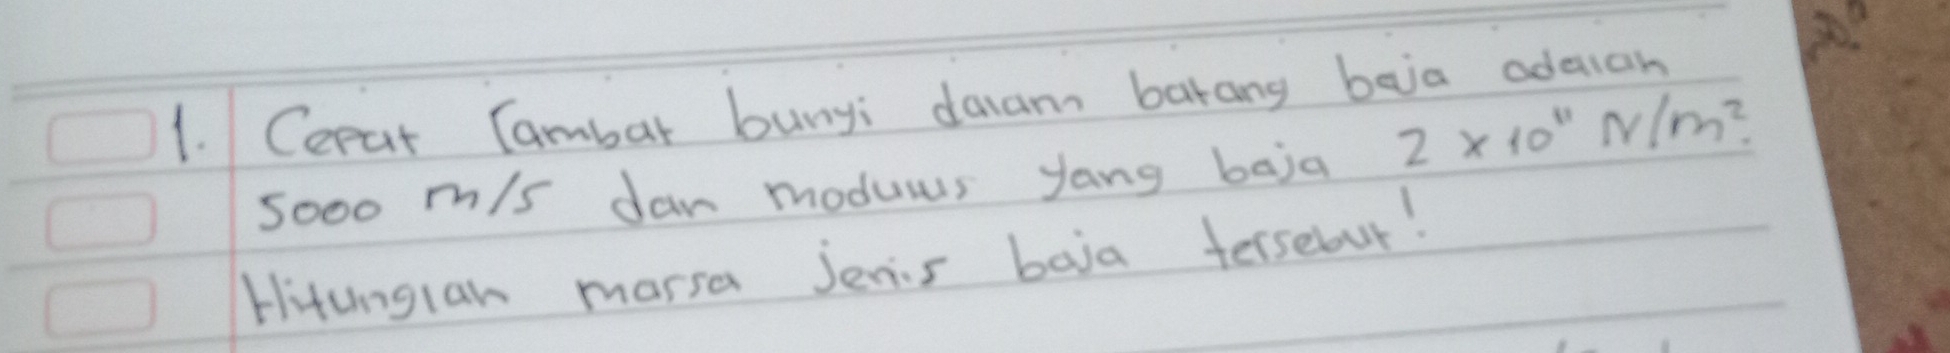 1. Cepat rambat bunyi dalam batang baja adalah
5000 m/s dan modulus yang baja 2 x 10¹¹ N/m².
Hitunglah massa jenis baja tersebut!